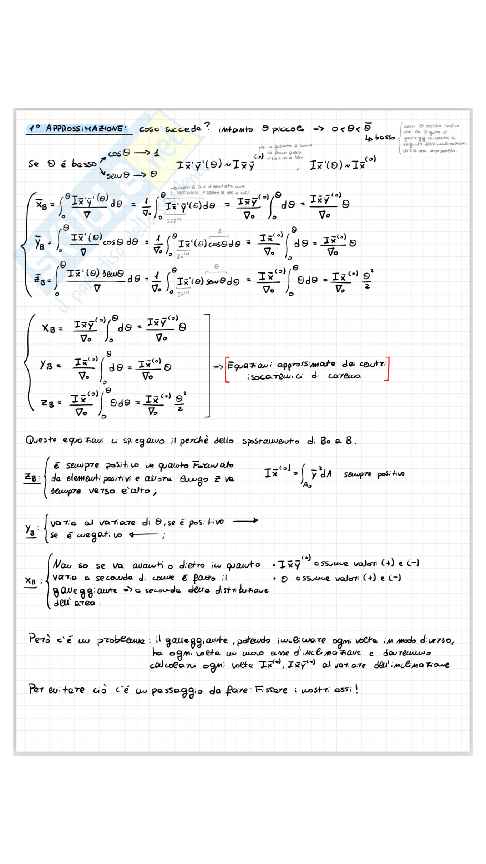 1° APPROSSIMAZIONE: cosa succede? intanto θ piccolo → 0<θ<θ̄
↳ basso
Se θ è basso cosθ → 1 Ix̄'ȳ'(θ) ~ Ix̄ȳ⁽⁰⁾, Ix̄'(θ) ~ Ix̄⁽⁰⁾
senθ → θ
x̄_B = ∫₀^θ Ix̄'ȳ'(θ)/∇ dθ = 1/∇₀ ∫₀^θ Ix̄'ȳ'(θ)dθ = Ix̄ȳ⁽⁰⁾/∇₀ ∫₀^θ dθ = Ix̄ȳ⁽⁰⁾/∇₀ θ
ȳ_B = ∫₀^θ Ix̄'(θ)/∇ cosθ dθ = 1/∇₀ ∫₀^θ Ix̄'(θ)cosθ dθ = Ix̄⁽⁰⁾/∇₀ ∫₀^θ dθ = Ix̄⁽⁰⁾/∇₀ θ
z̄_B = ∫₀^θ Ix̄'(θ)senθ/∇ dθ = 1/∇₀ ∫₀^θ Ix̄'(θ)senθ dθ = Ix̄⁽⁰⁾/∇₀ ∫₀^θ θdθ = Ix̄⁽⁰⁾/∇₀ θ²/2
x_B = Ix̄ȳ⁽⁰⁾/∇₀ ∫₀^θ dθ = Ix̄ȳ⁽⁰⁾/∇₀ θ
y_B = Ix̄⁽⁰⁾/∇₀ ∫₀^θ dθ = Ix̄⁽⁰⁾/∇₀ θ
z_B = Ix̄⁽⁰⁾/∇₀ ∫₀^θ θdθ = Ix̄⁽⁰⁾/∇₀ θ²/2
→ [Equazioni approssimate dei centri
isocarenici di carena]
Queste equazioni ci spiegano il perchè dello spostamento di B₀ a B.
z_B: è sempre positivo in quanto formato
da elementi positivi e allora lungo z va
sempre verso l'alto;
Ix̄⁽⁰⁾ = ∫_A₀ ȳ² dA sempre positivo
y_B: varia al variare di θ, se è positivo →
se è negativo ←;
x_B: Non so se va avanti o dietro in quanto
varia a seconda di come è fatto il
galleggiante → a seconda della distribuzione
dell'area
• Ix̄ȳ⁽⁰⁾ assume valori (+) e (-)
• θ assume valori (+) e (-)
Però c'è un problema: il galleggiante, potendo inclinare ogni volta in modo diverso,
ha ogni volta un nuovo asse d'inclinazione e dovremmo
calcolare ogni volta Ix̄⁽⁰⁾, Ix̄ȳ⁽⁰⁾ al variare dell'inclinazione
Per evitare ciò c'è un passaggio da fare: Fissare i nostri assi!